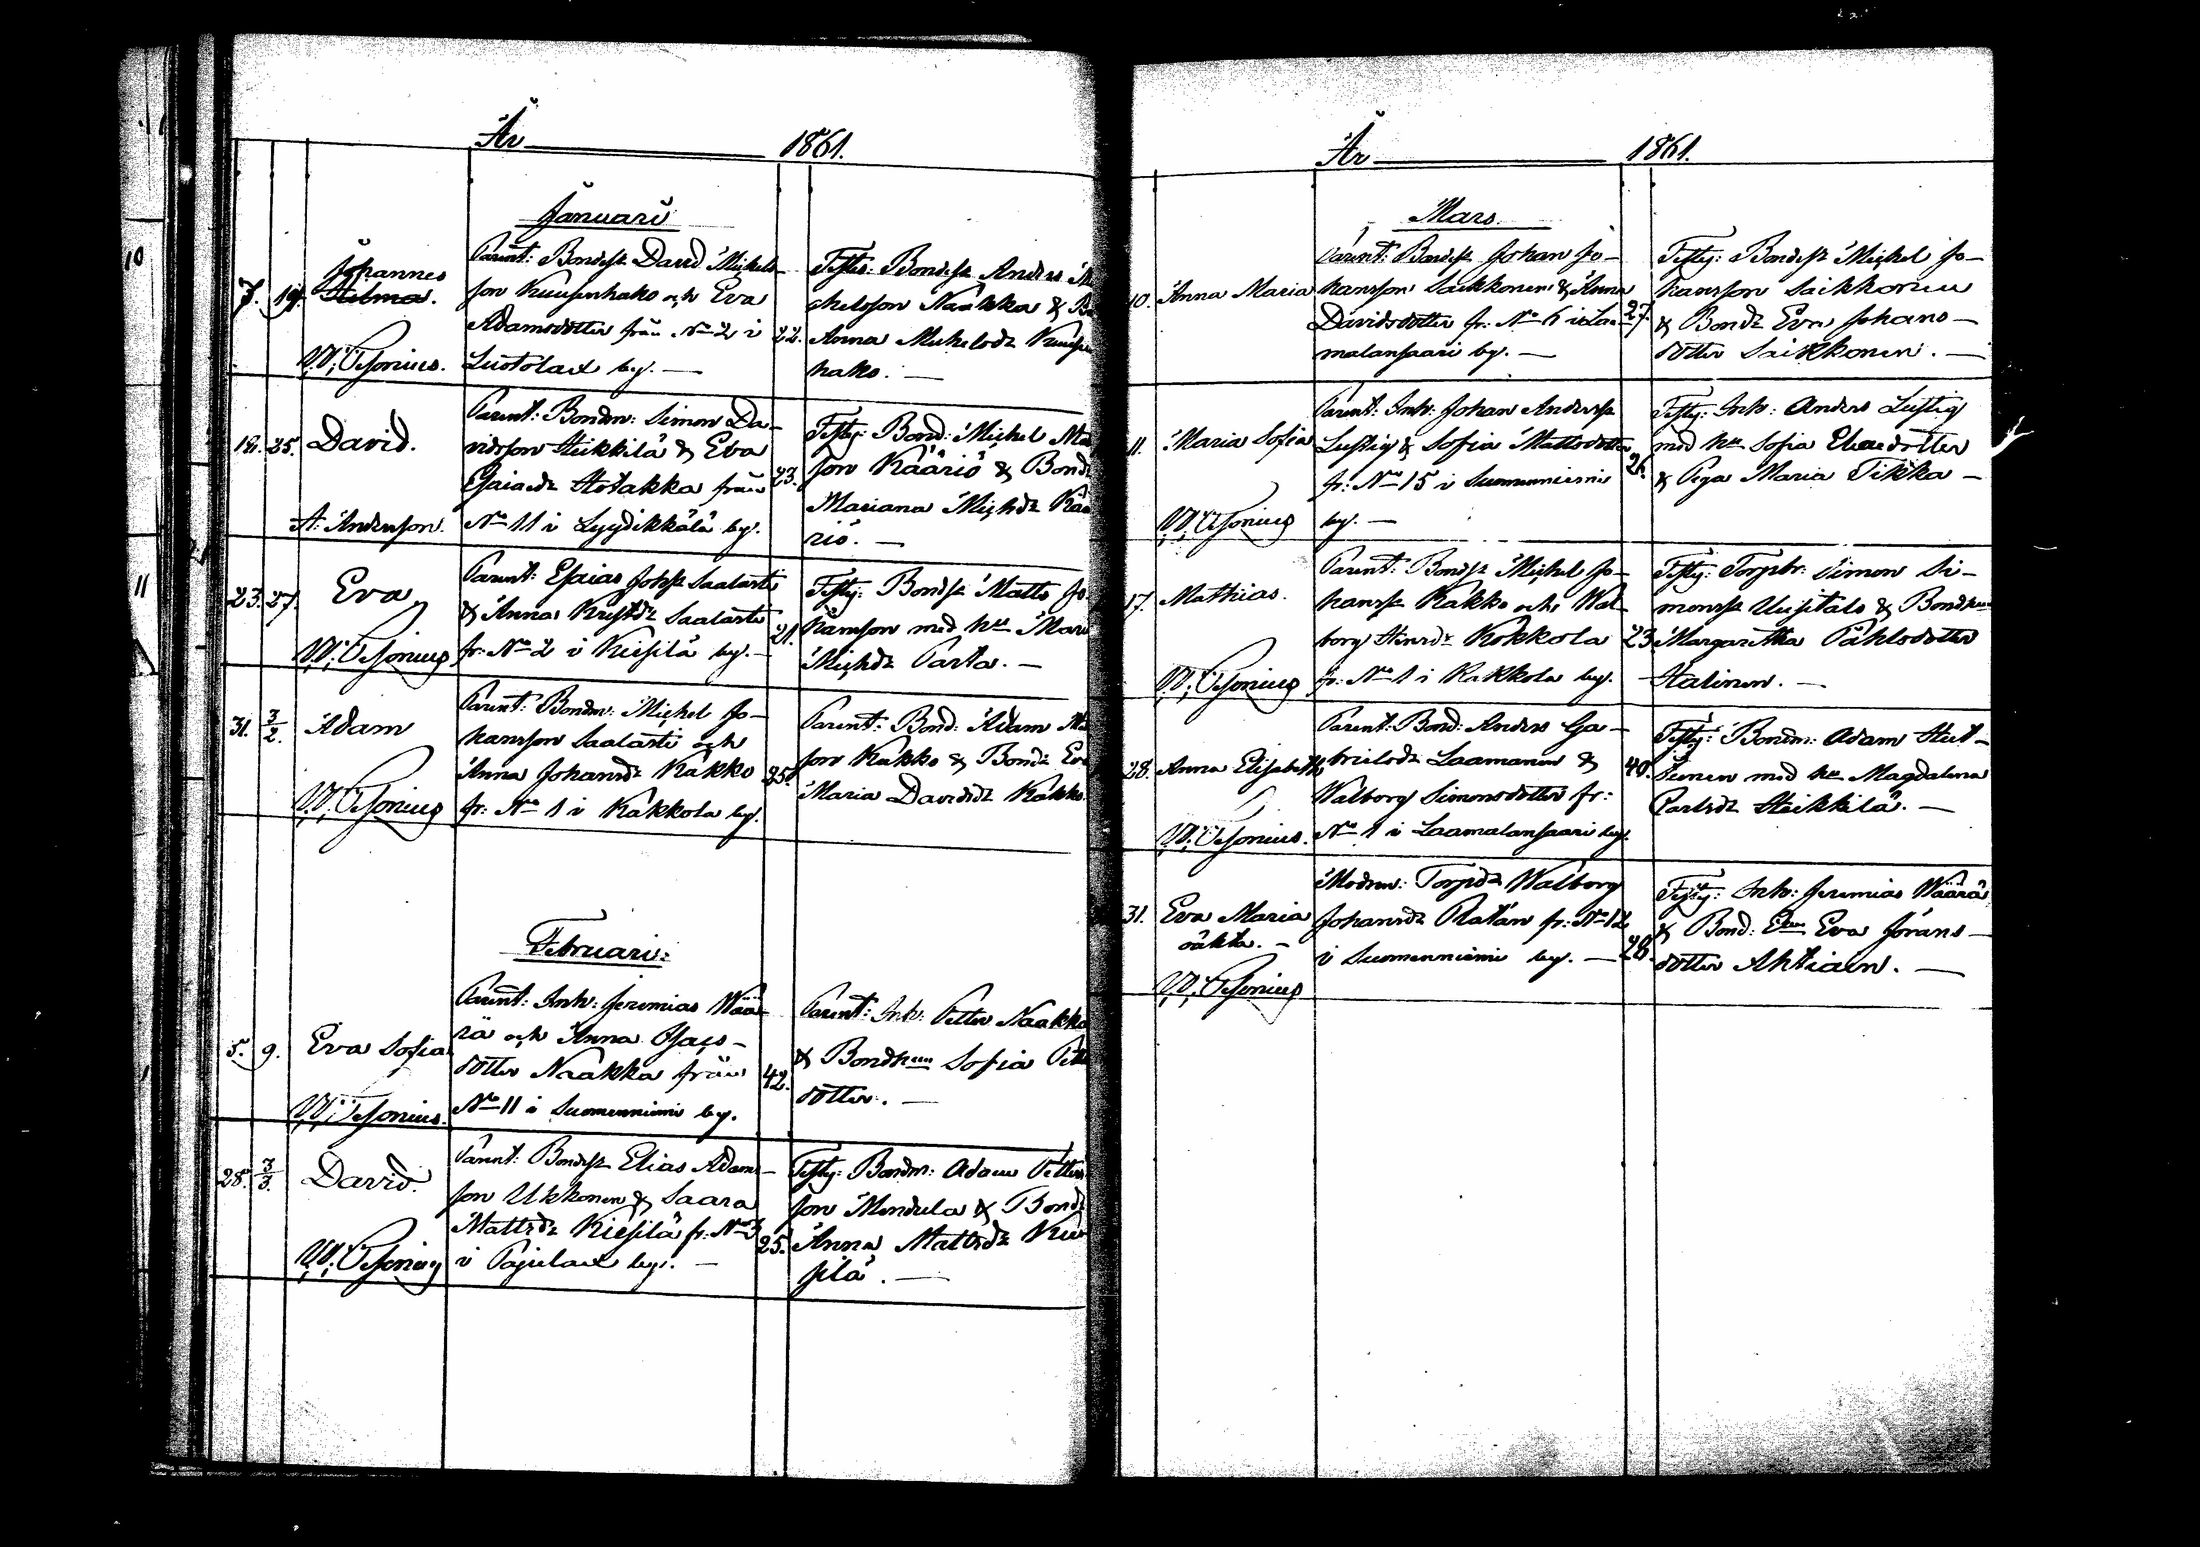 År 1861.
Januari
7. 19. Johannes
Hilma.
W. Pesonius.
Parent: Bondess David Michels-
son Kuusenhako och Eva
Adamsdotter från No 2 i
Lustolax by. —
22.
Testes: Bondess Anders Mi
chelsson Naakka & Bo
Anna Michelsdr Kuuse
hako. —
18. 25. David.
A: Anderson.
Parent: Bondm: Simon Da-
vidsson Heikkilä & Eva
Esaiædr Hotakka från
No 11 i Lyydikkälä by.
23.
Testes: Bond: Michel Ma
son Kääriö & Bond
Mariana Michsdr Kää
riö. —
23. 27. Eva
W. Pesonius
Parent: Esaias Johss Saalasti
& Anna Kristdr Saalasti
fr: No 2 i Kiesilä by. —
21.
Testes: Bondss Matts Jo
hansson med hu Mari
Michsdr Parta. —
31. 3/2. Adam
W. Pesonius
Parent: Bondm: Michel Jo-
hansson Saalasti och
Anna Johansdr Kakko
fr: No 1 i Kakkola by.
25.
Parent: Bond: Adam Ma
son Kakko & Bondr Ev
Maria Davidsdr Kakko.
Februari:
5. 9. Eva Sofia
W. Pesonius.
Parent: Inh: Jeremias Wää-
rä och Anna Isacs-
dotter Naakka från
No 11 i Suomenniemi by.
42.
Parent: Inh: Petter Naakka
& Bondhun Sofia Pett
dotter. —
28. 3/3. David.
W. Pesonius
Parent: Bondess Elias Adams-
son Ukkonen & Saara
Mattsdr Kiesilä fr: No 3
i Pajulax by. —
25.
Testes: Bondm: Adam Petters
son Mendula & Bondr
Anna Mattsdr Kie
silä. —
År 1861.
Mars.
10. Anna Maria
Parent: Bondess Johan Jo-
hansson Saikkonen & Anna
Davidsdotter fr: No 6 i Laa-
malansaari by. —
27.
Testes: Bondess Michel Jo-
hansson Saikkonen
& Bondr Eva Johans-
dotter Saikkonen. —
11. Maria Sofia
W. Pesonius
Parent: Inh: Johan Anderss
Lustig & Sofia Mattsdotter
fr: No 15 i Suomenniemi
by. —
26.
Testes: Inh: Anders Lustig
med hu Sofia Eliædotter
& Piga Maria Tikka —
17. Mathias.
W. Pesonius
Parent: Bondss Michel Jo-
hanss Kakko och Wal-
borg Henrdr Kokkola
fr: No 1 i Kakkola by.
23.
Testes: Torpbr: Simon Si-
monss Uusitalo & Bondhun
Margaretha Påhlsdotter
Halinen. —
28. Anna Elisabeth
W. Pesonius.
Parent: Bond: Anders Ga-
brielsdr Laamanen &
Walborg Simonsdotter fr:
No 1 i Laamalansaari by.
40.
Testes: Bondm: Adam Heit-
Junen med hu Magdalena
Carlsdr Heikkilä. —
31. Eva Maria
oäkta. —
W. Pesonius
Modren: Torpdr Walborg
Johansdr Ratán fr: No 12
i Suomenniemi by. —
28.
Testes: Inh: Jeremias Wäärä
& Bond: Ehun Eva Görans-
dotter Ahtiain. —
10
11